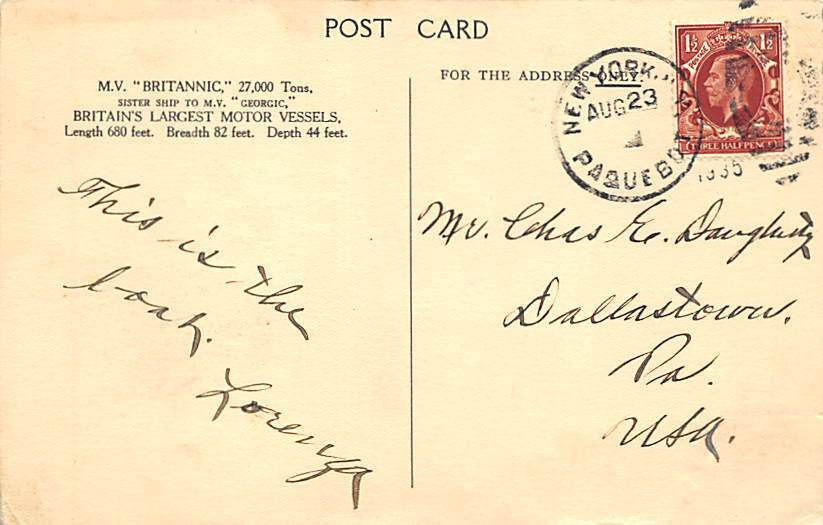 POST CARD
M.V. "BRITANNIC," 27,000 Tons,
SISTER SHIP TO M.V. "GEORGIC,"
BRITAIN'S LARGEST MOTOR VESSELS,
Length 680 feet. Breadth 82 feet. Depth 44 feet.
This is the
boat.
Lorenza
FOR THE ADDRESS ONLY.
NEW YORK, N.Y.
AUG 23
1935
PAQUEBOT
1½ 1½
POSTAGE REVENUE
THREE HALFPENCE
Mr. Chas E. Daugherty
Dallastown.
Pa.
USA.